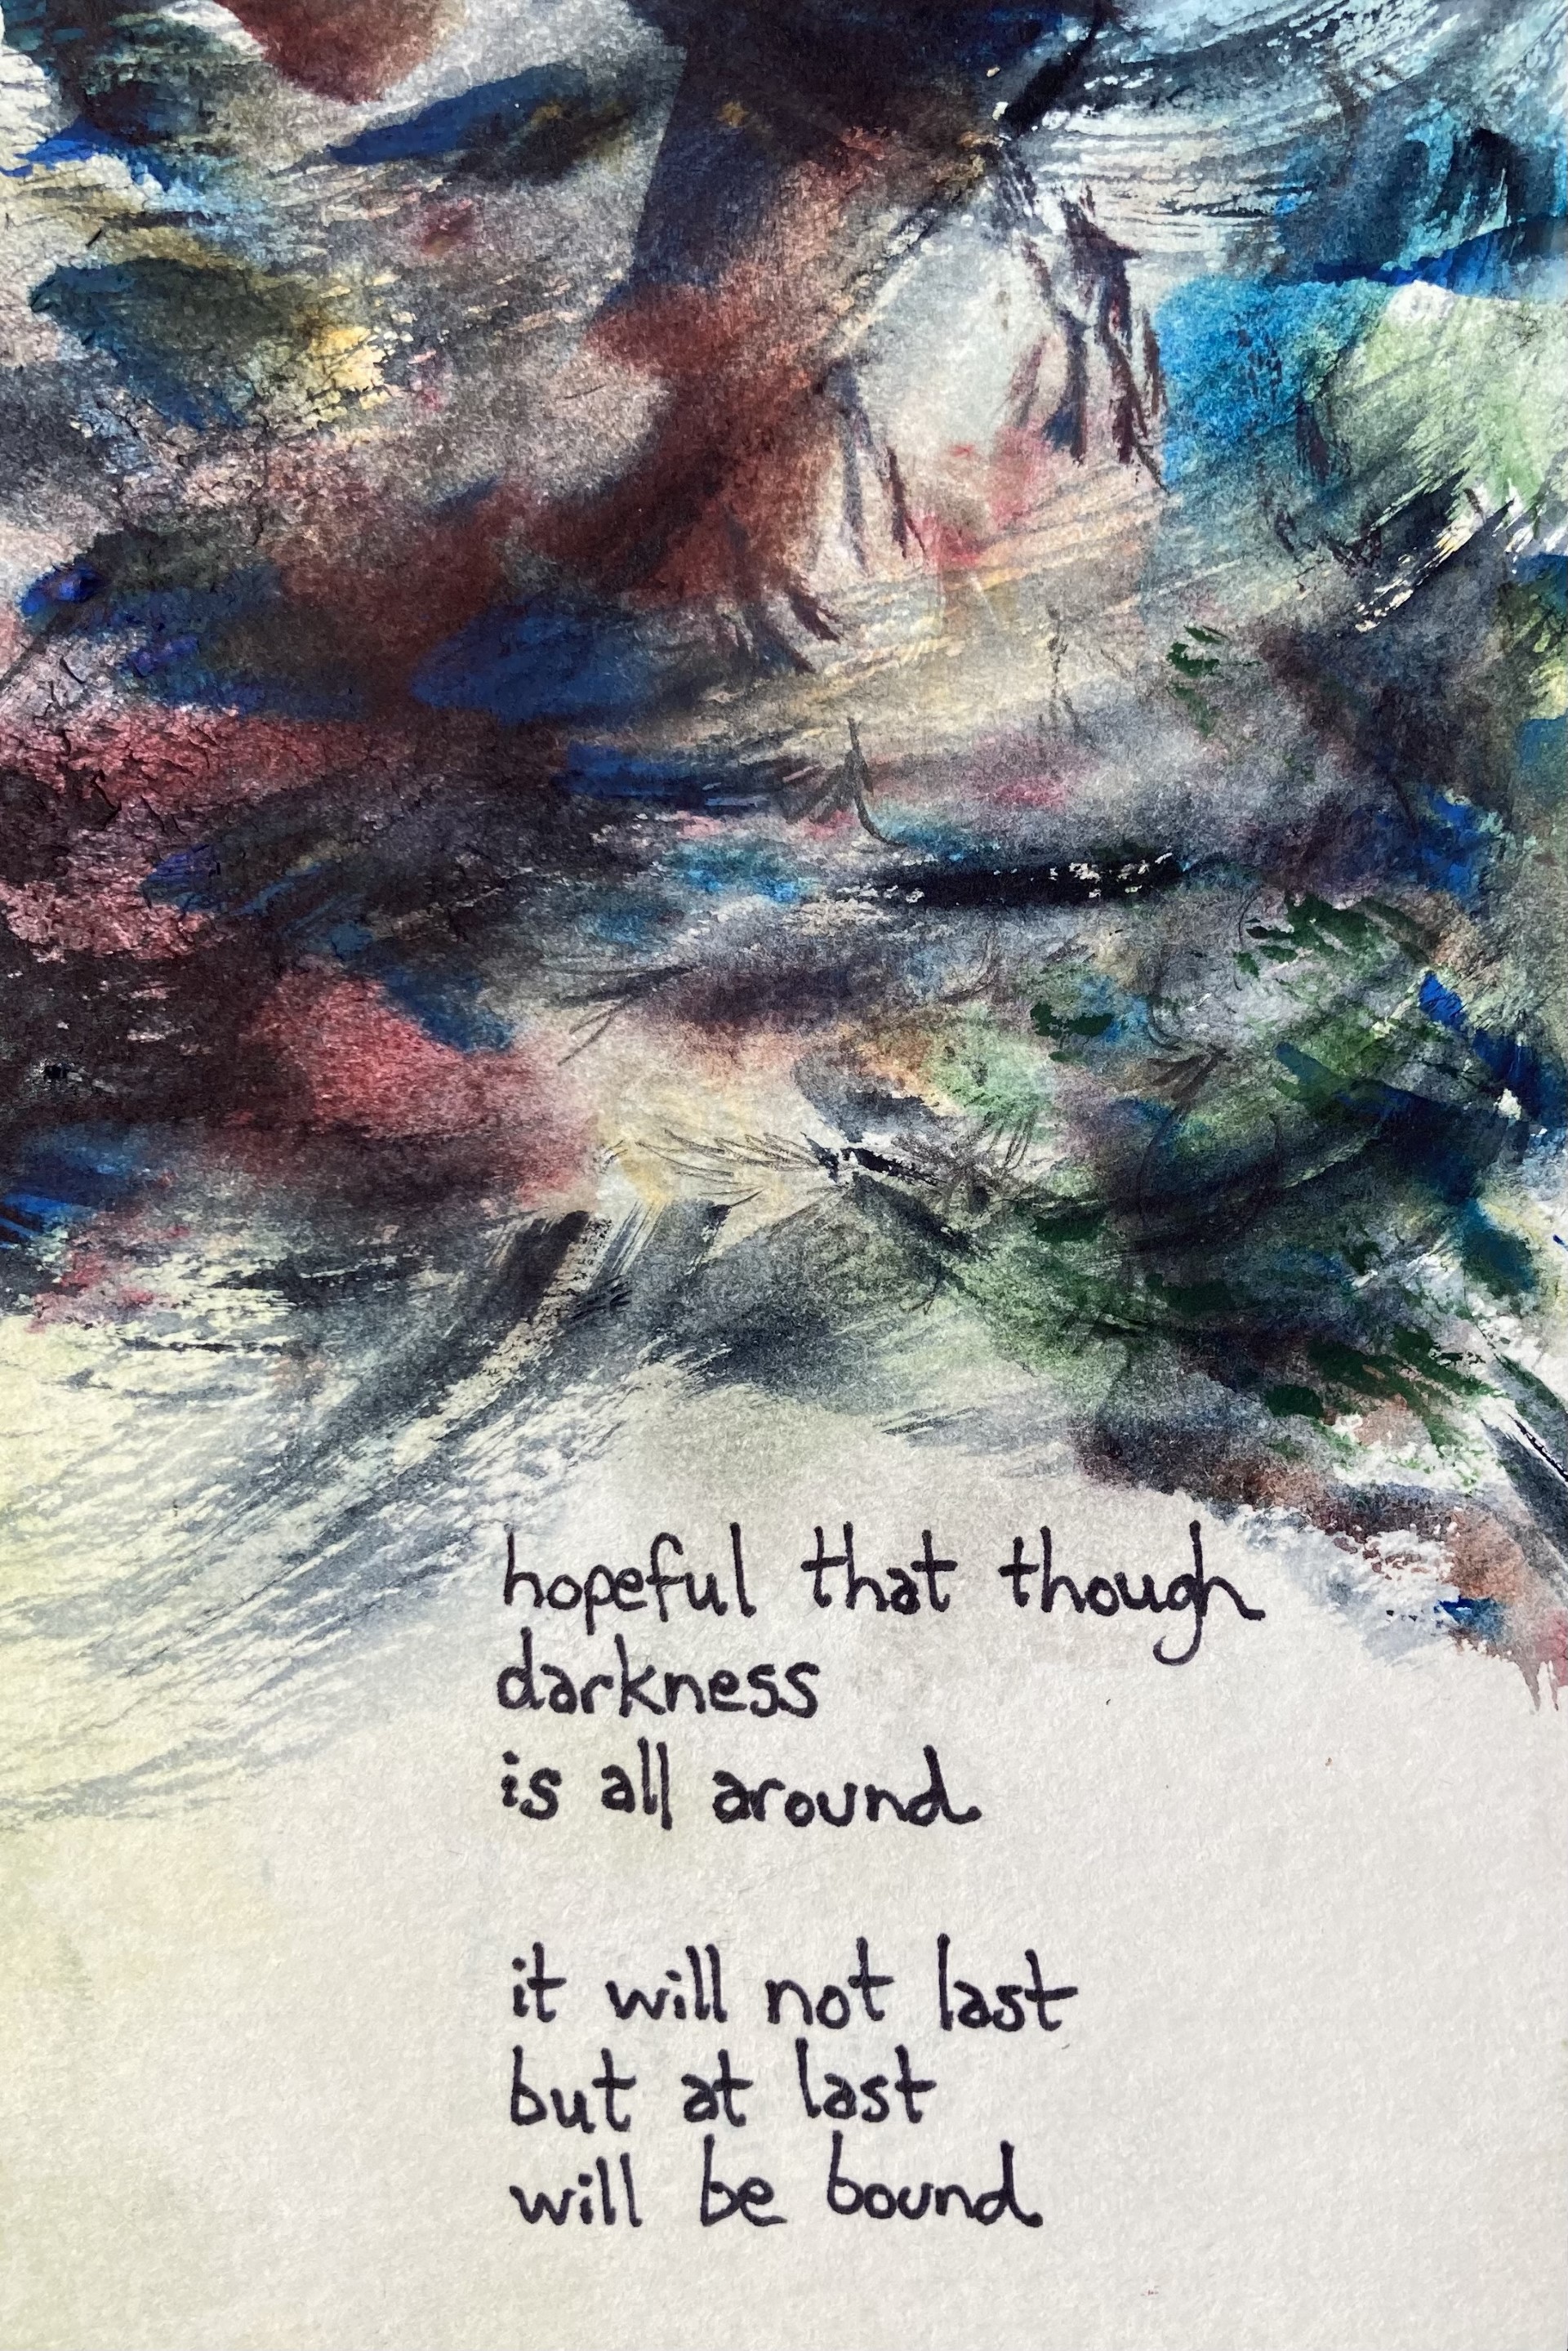 hopeful that though
darkness
is all around
it will not last
but at last
will be bound